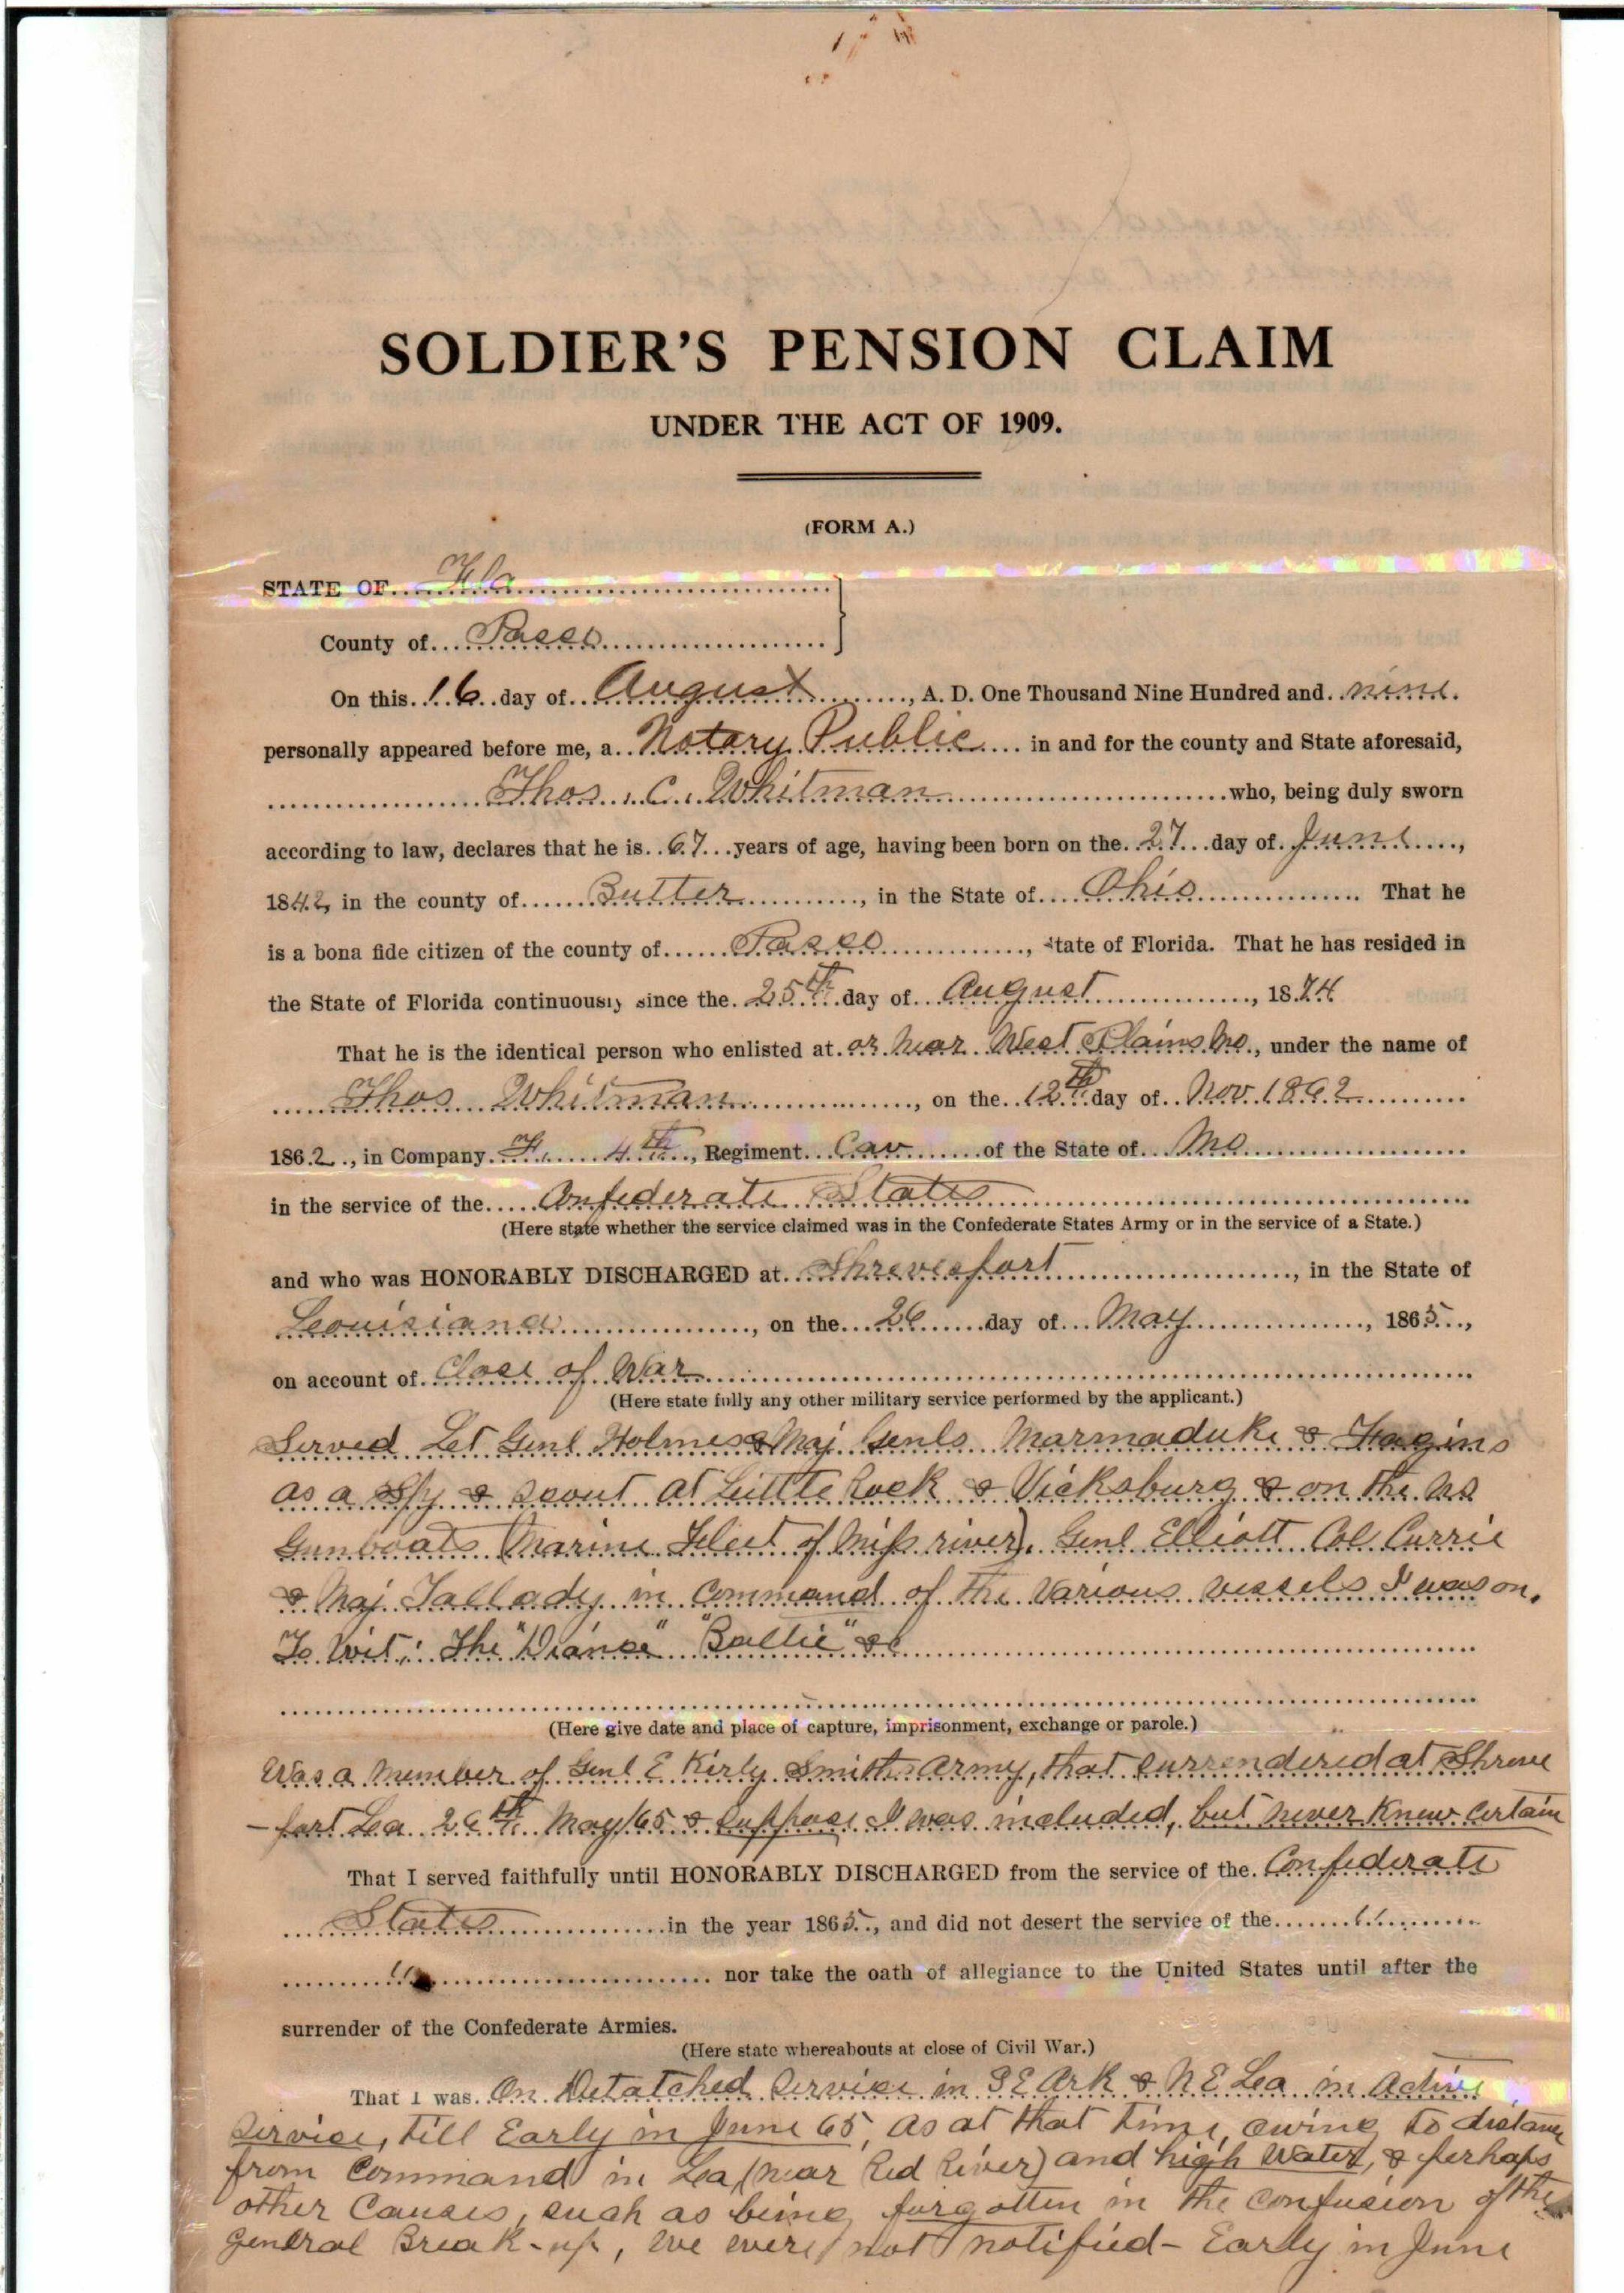 SOLDIER'S PENSION CLAIM
UNDER THE ACT OF 1909.
(FORM A.)
STATE OF Fla
County of Pasco
On this 16 day of August, A. D. One Thousand Nine Hundred and nine.
personally appeared before me, a Notary Public in and for the county and State aforesaid,
Thos. C. Whitman who, being duly sworn
according to law, declares that he is 67 years of age, having been born on the 27 day of June,
1842, in the county of Butler, in the State of Ohio. That he
is a bona fide citizen of the county of Pasco, State of Florida. That he has resided in
the State of Florida continuously since the 25th day of August, 1874
That he is the identical person who enlisted at or Near West Plains Mo., under the name of
Thos Whitman, on the 12th day of Nov. 1862
1862, in Company F. 4th, Regiment Cav of the State of Mo
in the service of the Confederate States
(Here state whether the service claimed was in the Confederate States Army or in the service of a State.)
and who was HONORABLY DISCHARGED at Shrevesport, in the State of
Leouisiana, on the 26 day of May, 1865,
on account of Close of War
(Here state fully any other military service performed by the applicant.)
Served Let Genl Holmes & Maj Genls Marmaduke & Fagins
as a Spy & Scout at Little Rock & Vicksburg & on the US
Gunboats (Marine Fleet of Miss river). Genl Elliott Col Currie
& Maj Tallady in Command of the Various vessels I was on.
To Wit: The "Diana" "Baltic" &c
(Here give date and place of capture, imprisonment, exchange or parole.)
Was a Member of Genl E Kirly Smiths Army, that surrendered at Shreve
-port La 26th May/65 & suppose I was included, but never Knew Certain
That I served faithfully until HONORABLY DISCHARGED from the service of the Confederate
States in the year 1865, and did not desert the service of the "
" nor take the oath of allegiance to the United States until after the
surrender of the Confederate Armies.
(Here state whereabouts at close of Civil War.)
That I was On Detatched Service in S E Ark & N E La in Active
Service, till Early in June 65, as at that time, owing to distance
from Command in La (near Red River) and high Water, & perhaps
other Causes, such as being forgotten in the confusion of the
general Break-up, we were not notified - Early in June